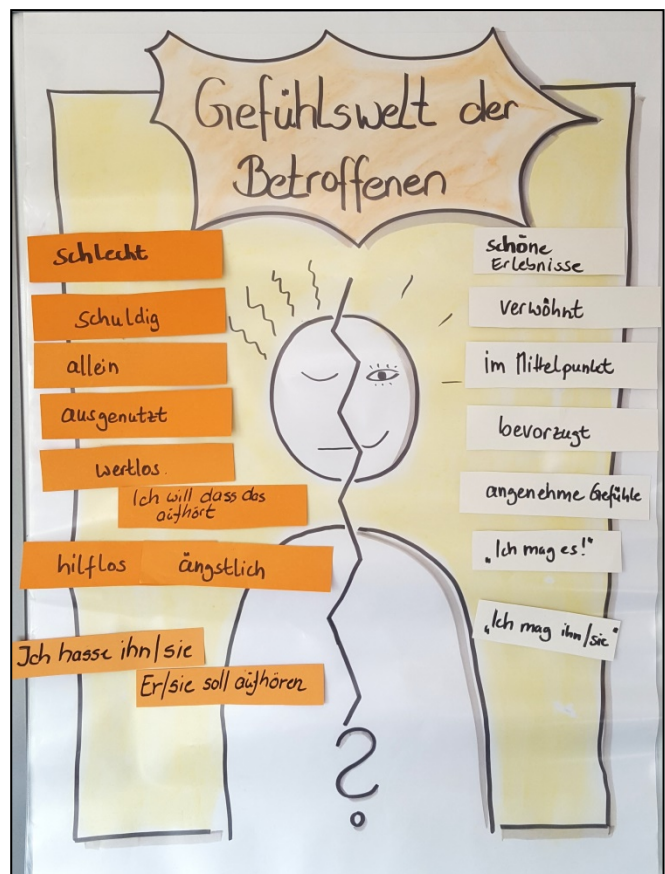 Gefühlswelt der
Betroffenen
schlecht
schuldig
allein
ausgenutzt
wertlos.
Ich will dass das
aufhört
hilflos
ängstlich
Ich hasse ihn/sie
Er/sie soll aufhören
schöne
Erlebnisse
verwöhnt
im Mittelpunkt
bevorzugt
angenehme Gefühle
„Ich mag es!"
„Ich mag ihn/sie"
?